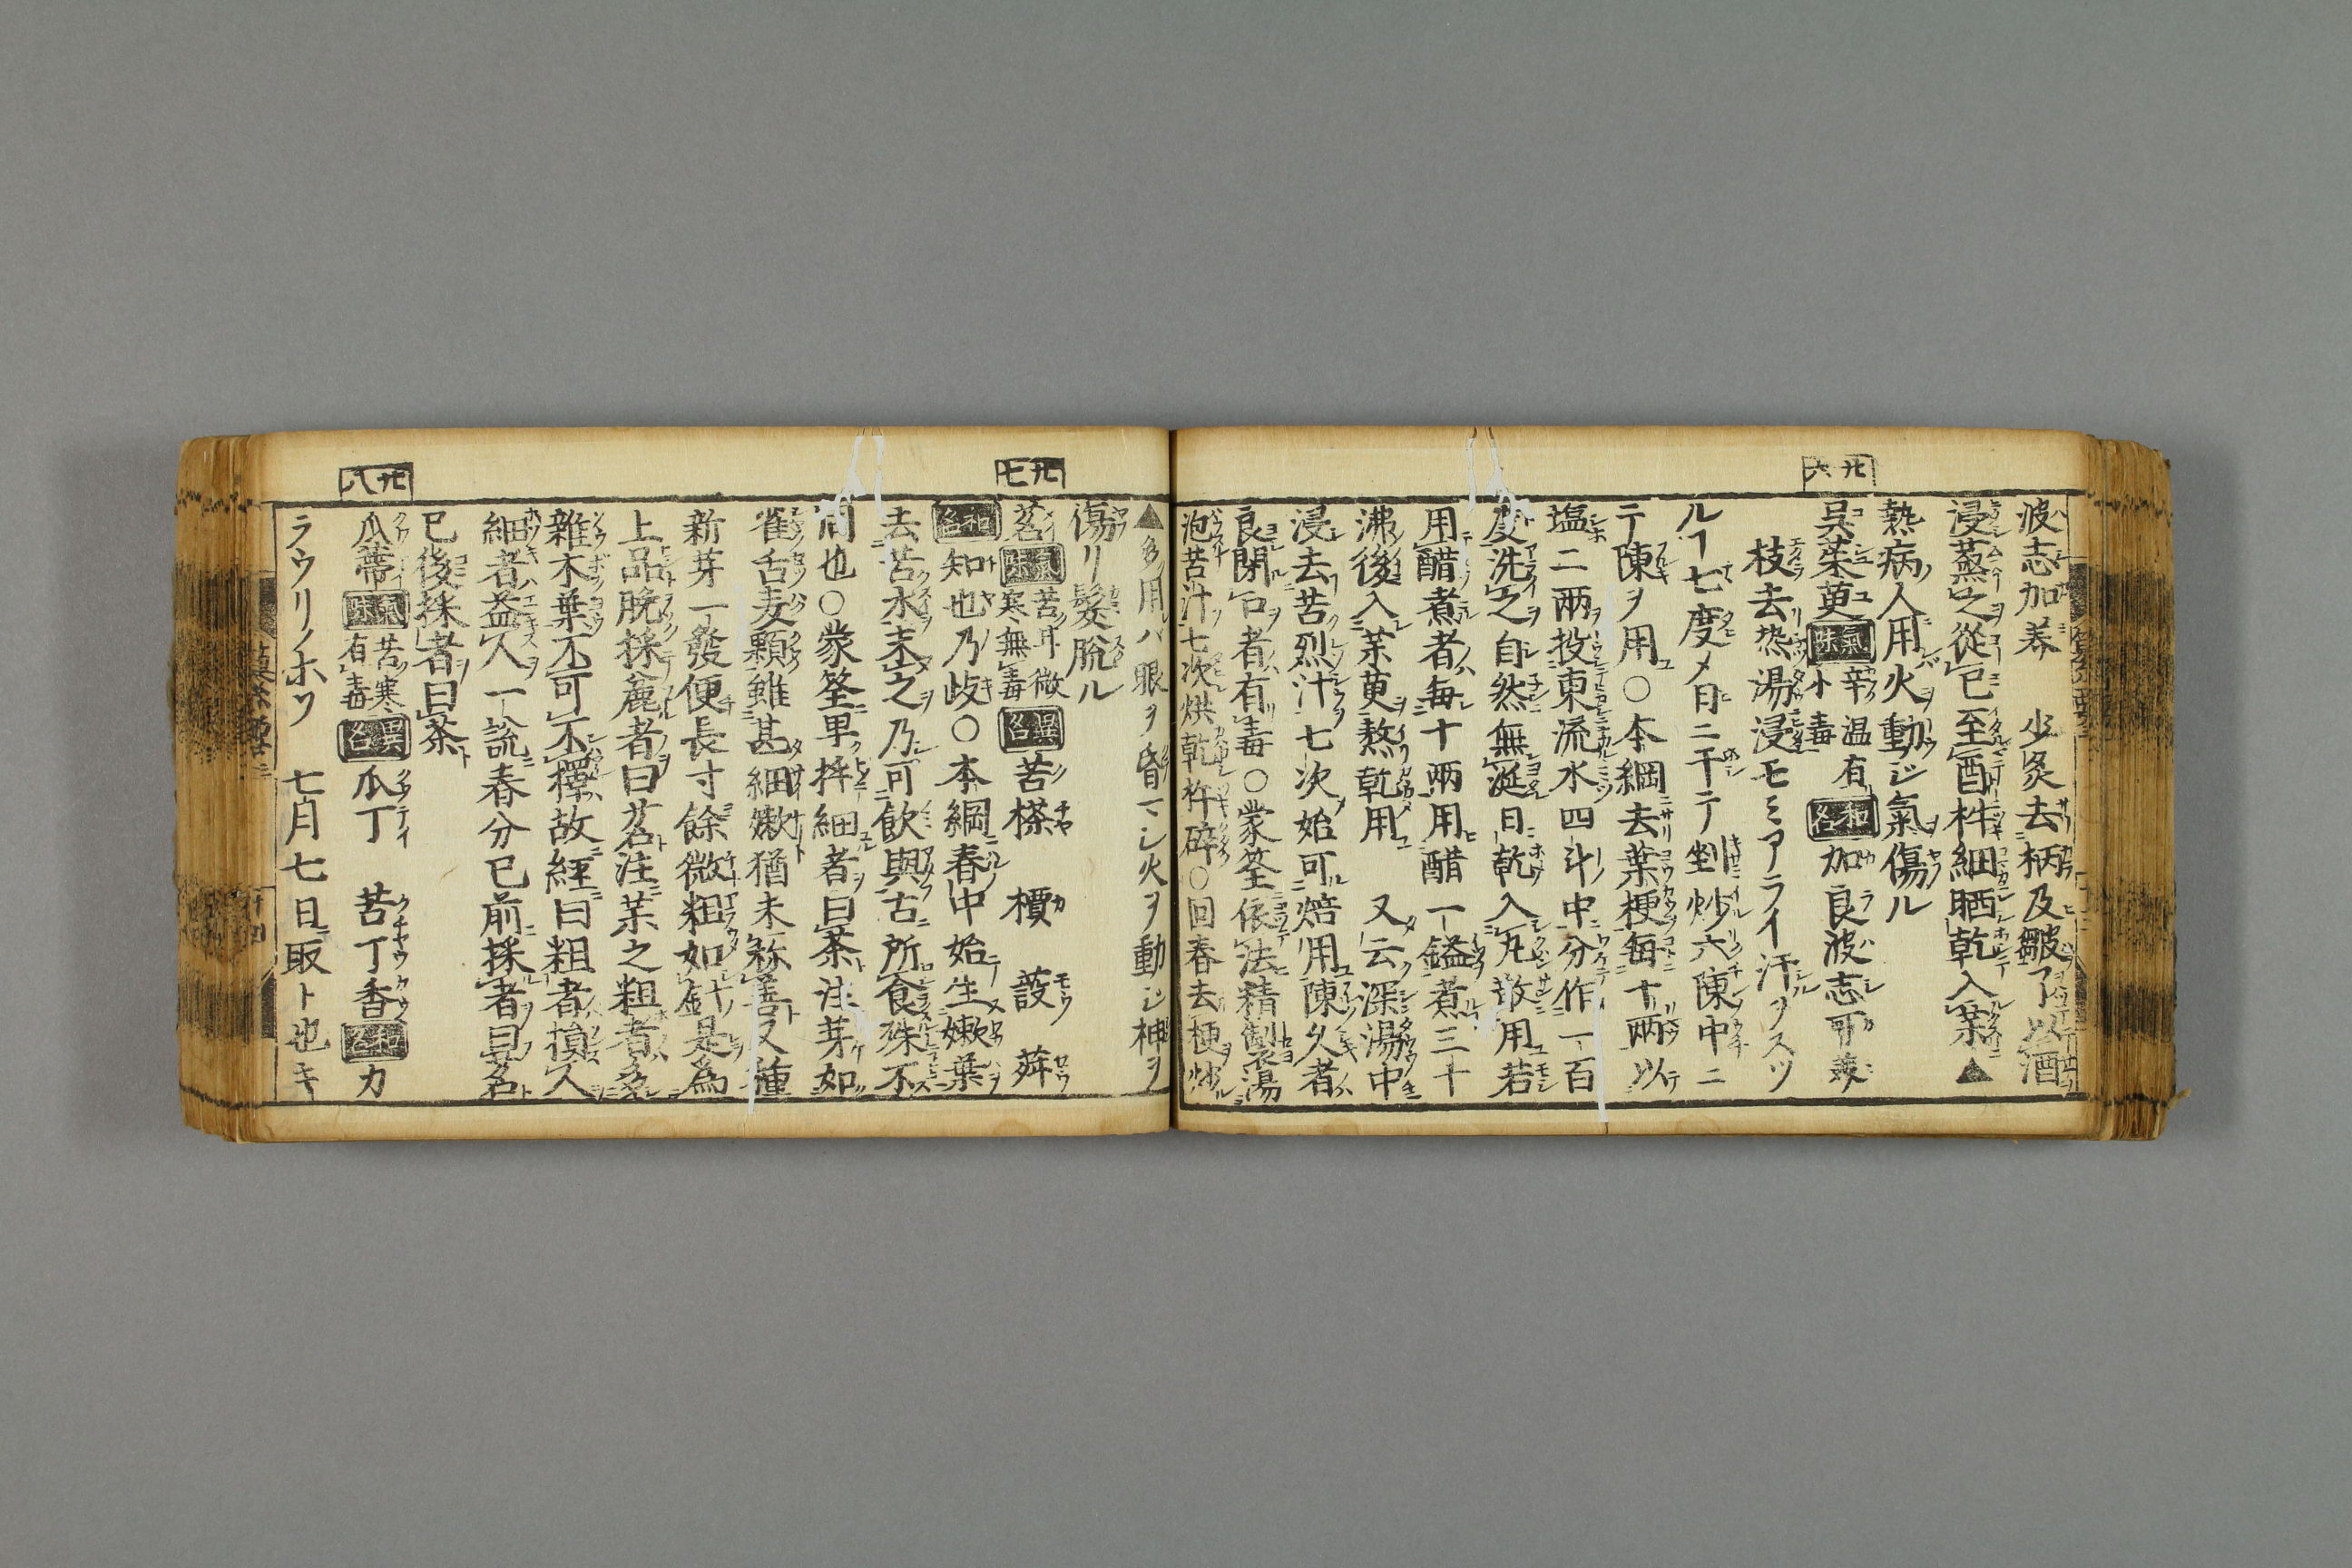 廿六
波志加美 少炙去柄及皺了以酒
浸蒸之從巳至酉杵細晒乾入藥▲
熱病人用火動ジ氣傷ル
呉茱萸 氣味 辛温有小毒 和名 加良波志可美
枝去热湯浸モミアライ汗ヲスツ
ルヿ七度〆日ニ干テ剉炒六陳中ニ
テ陳ヲ用○本綱去葉梗每十兩以
塩二兩投東流水四斗中分作一百
度洗之自然無涎日乾入丸散用若
用醋煮者每十兩用醋一鎰煮三十
沸後入茱萸熬乾用 又云深湯中
浸去苦烈汁七次始可焙用陳久者
良閉口者有毒○蒙筌依法精製衮湯
泡苦汁七次烘乾杵碎○回春去梗炒
廿七
▲多用バ眼ヲ昏マシ火ヲ動ジ神ヲ
傷リ髮脫ル
茗 氣味 苦甘微寒無毒 異名 苦𣘻 檟 蔎 荈
和名 知也乃歧○本綱春中始生嫩葉
去苦水末之乃可飲與古所食殊不
同也○蒙筌早採細者曰茶注芽如
雀舌麦顆雖甚細嫩猶未称善又種
新芽一發便長寸餘微粗如針是為
上品晚採麁者曰茗注葉之粗者多
雜木葉不可不擇故經曰粗者損人
細者益人一說春分已前採者曰名
已後採者曰茶
廿八
瓜蔕 氣味 苦寒有毒 異名 瓜丁 苦丁香 和名 カ
ラウリノホソ 七月七日ニ取ト也キ